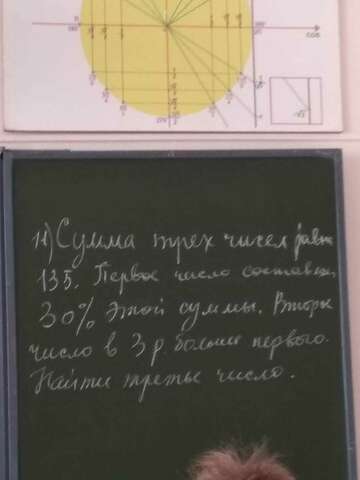 cos
11) Сумма трех чисел равн
135. Первое число составляет
30% этой суммы. Второе
число в 3 р. больше первого.
Найти третье число.